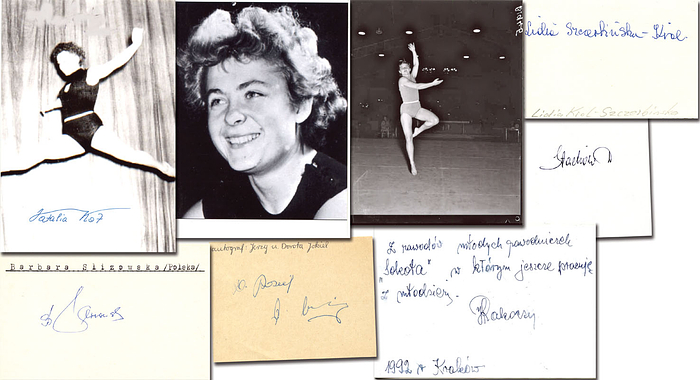 Natalia Kot
Lidia Szczerbińska-Król
Lidia Król-Szczerbińska
Stachów D
Barbara Slizowska /Polska/
autograf: Jerzy i Dorota Jokiel
Z zawodów młodych zawodniczek
"Sokoła" w którym jeszcze pracuję
z młodzieżą.
HRakoczy
1992 r Kraków